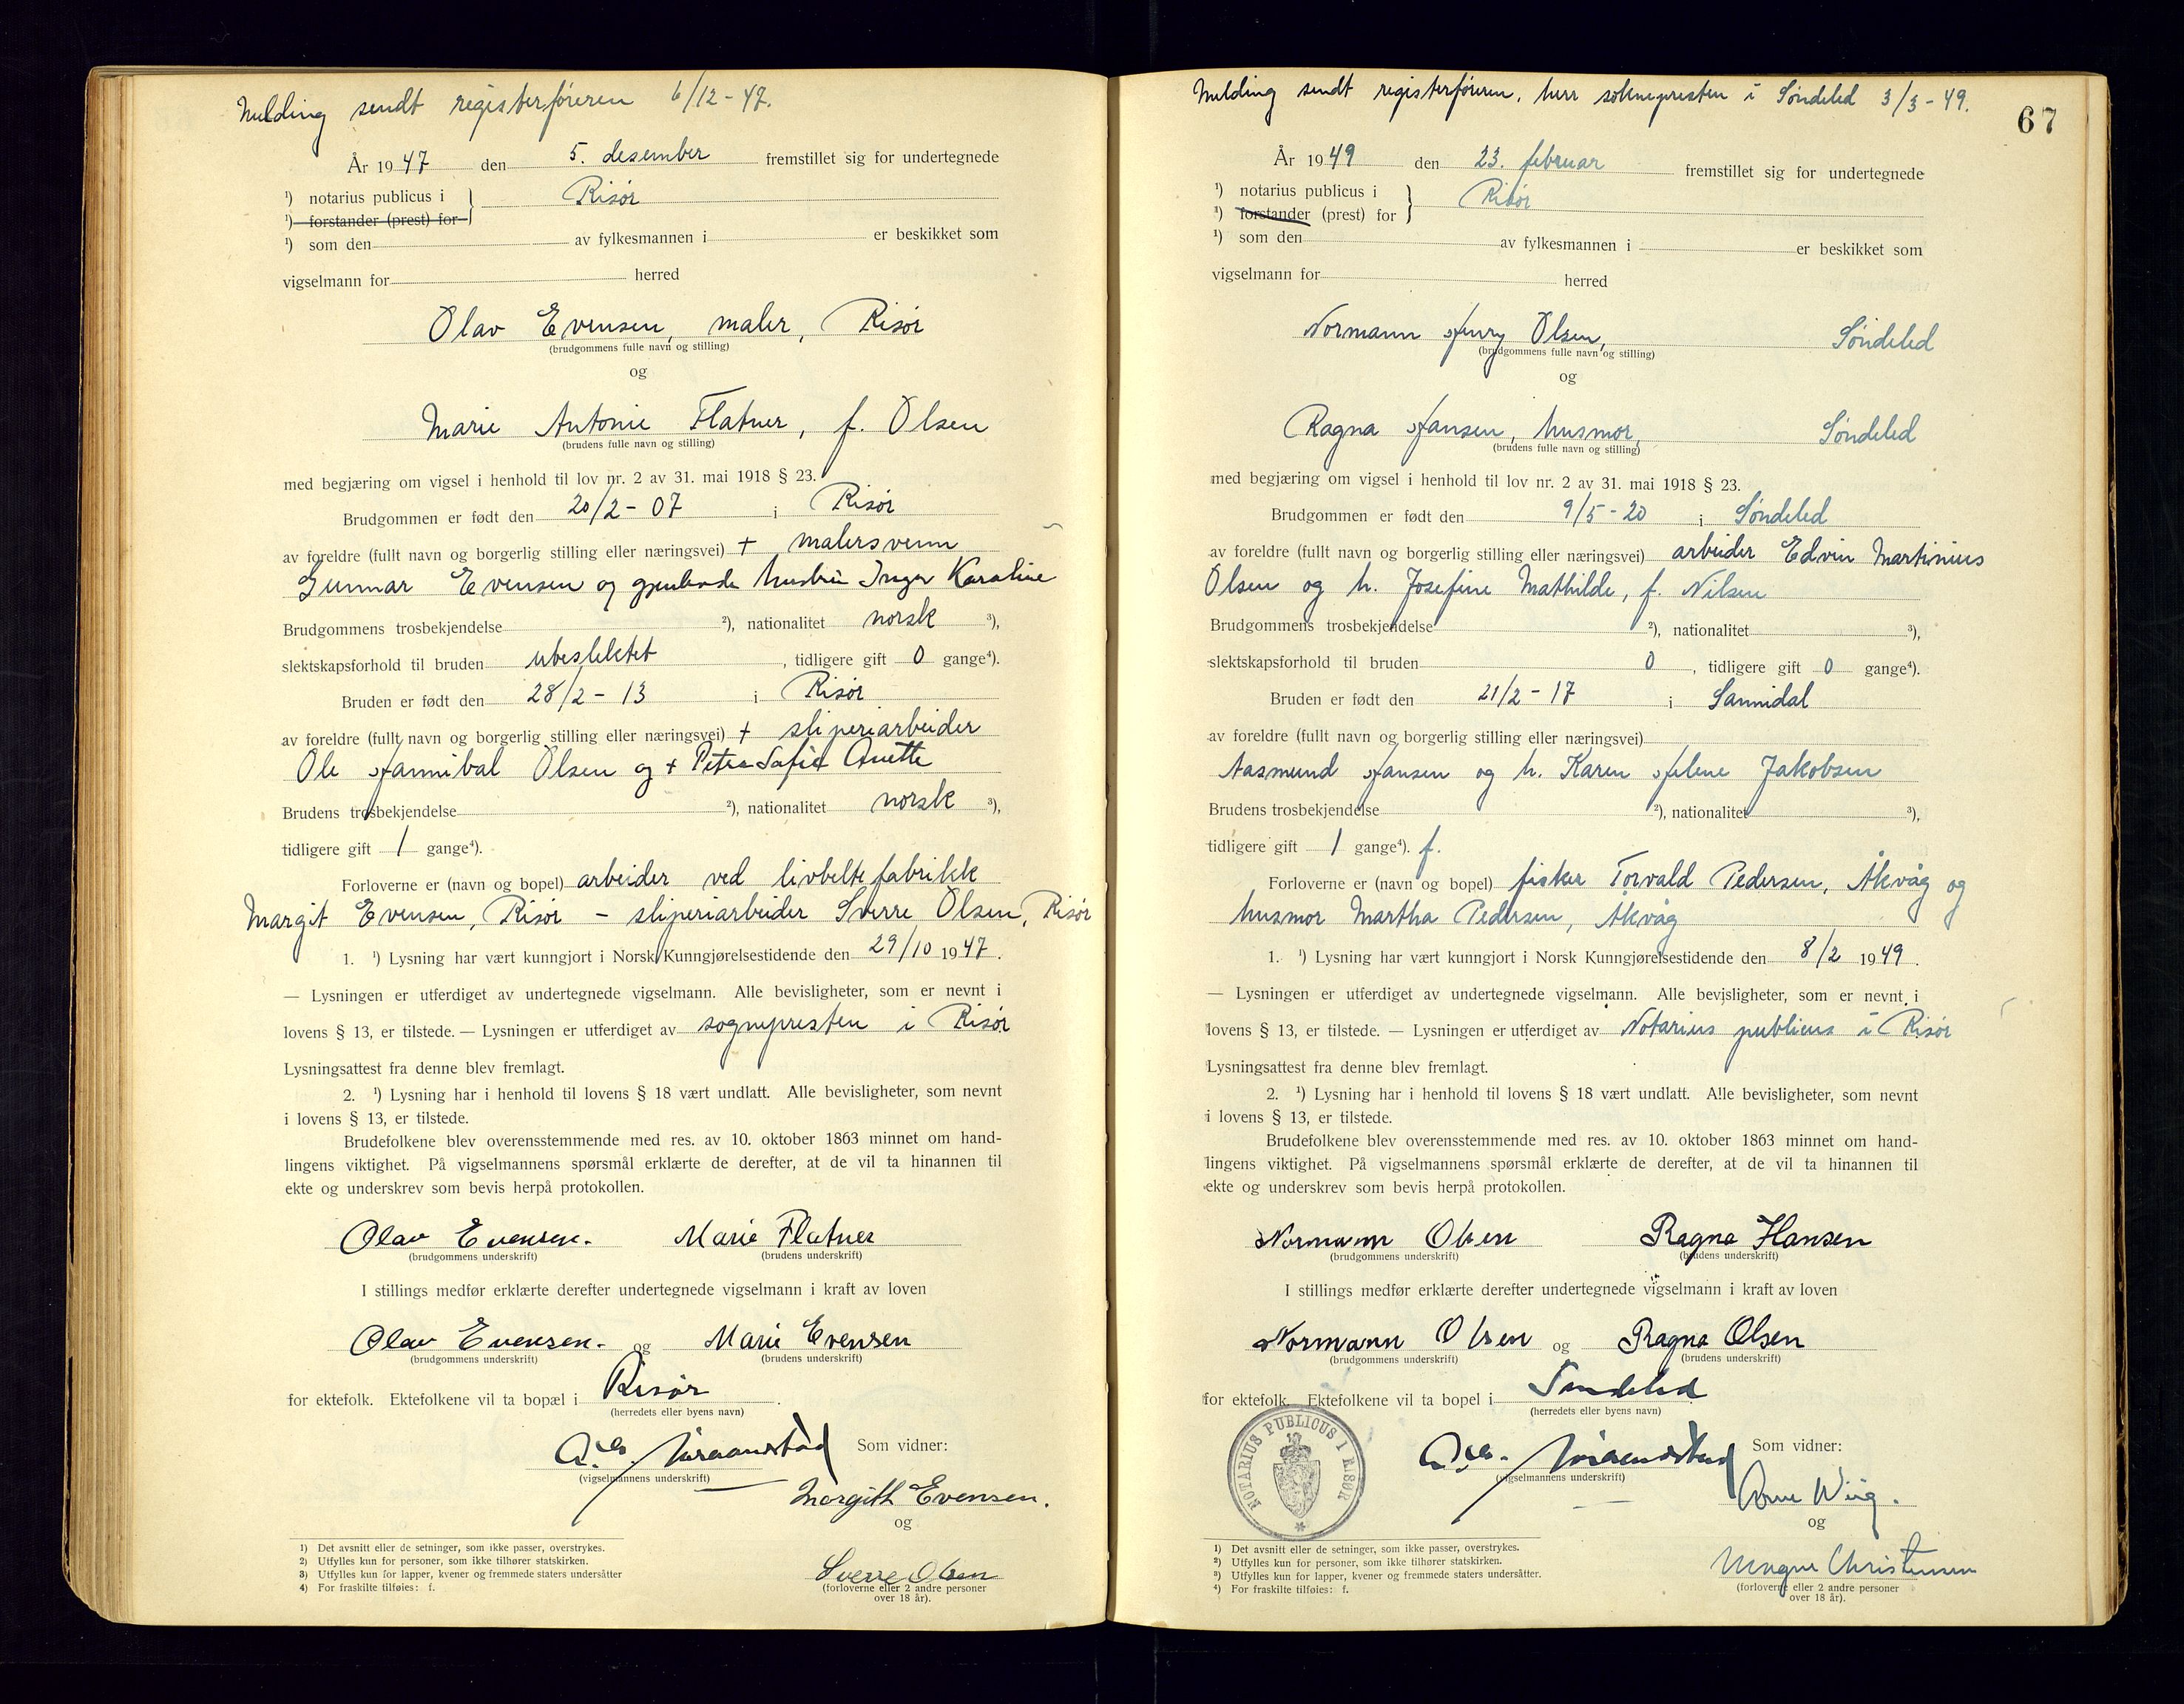 Melding sendt registerføreren 6/12-47.
År 1947 den 5. desember fremstillet sig for undertegnede
¹) notarius publicus i } Risør
¹) forstander (prest) for
¹) som den av fylkesmannen i er beskikket som
vigselmann for herred
Olav Evensen, maler, Risør
(brudgommens fulle navn og stilling)
og
Marie Antonie Flatner, f. Olsen
(brudens fulle navn og stilling)
med begjæring om vigsel i henhold til lov nr. 2 av 31. mai 1918 § 23.
Brudgommen er født den 20/2-07 i Risør
av foreldre (fullt navn og borgerlig stilling eller næringsvei) + malersvenn
Gunnar Evensen og gjenlevende hustru Inga Karoline
Brudgommens trosbekjendelse ²), nationalitet norsk ³),
slektskapsforhold til bruden ubeslektet, tidligere gift 0 gange⁴).
Bruden er født den 28/2-13 i Risør
av foreldre (fullt navn og borgerlig stilling eller næringsvei) + sliperiarbeider
Ole Hannibal Olsen og + Petra Sofie Anette
Brudens trosbekjendelse ²), nationalitet norsk ³),
tidligere gift 1 gange⁴).
Forloverne er (navn og bopel) arbeider ved livbeltefabrikk
Margit Evensen, Risør - sliperiarbeider Sverre Olsen, Risør
1. ¹) Lysning har vært kunngjort i Norsk Kunngjørelsestidende den 29/10 1947.
— Lysningen er utferdiget av undertegnede vigselmann. Alle bevisligheter, som er nevnt i
lovens § 13, er tilstede. — Lysningen er utferdiget av sognepresten i Risør
Lysningsattest fra denne blev fremlagt.
2. ¹) Lysning har i henhold til lovens § 18 vært undlatt. Alle bevisligheter, som nevnt
i lovens § 13, er tilstede.
Brudefolkene blev overensstemmende med res. av 10. oktober 1863 minnet om hand-
lingens viktighet. På vigselmannens spørsmål erklærte de derefter, at de vil ta hinannen til
ekte og underskrev som bevis herpå protokollen.
Olav Evensen. Marie Flatner
(brudgommens underskrift) (brudens underskrift)
I stillings medfør erklærte derefter undertegnede vigselmann i kraft av loven
Olav Evensen. og Marie Evensen
(brudgommens underskrift) (brudens underskrift)
for ektefolk. Ektefolkene vil ta bopæl i Risør.
(herredets eller byens navn)
Som vidner:
(vigselmannens underskrift)
Margith Evensen.
og
Sverre Olsen
(forloverne eller 2 andre personer
over 18 år).
1) Det avsnitt eller de setninger, som ikke passer, overstrykes.
2) Utfylles kun for personer, som ikke tilhører statskirken.
3) Utfylles kun for lapper, kvener og fremmede staters undersåtter
4) For fraskilte tilføies: f.
Melding sendt registerføreren, herr soknepresten i Søndeled 3/3-49.
67
År 1949 den 23. februar fremstillet sig for undertegnede
¹) notarius publicus i } Risør
¹) forstander (prest) for
¹) som den av fylkesmannen i er beskikket som
vigselmann for herred
Normann Henry Olsen, Søndeled
(brudgommens fulle navn og stilling)
og
Ragna Hansen, husmor, Søndeled
(brudens fulle navn og stilling)
med begjæring om vigsel i henhold til lov nr. 2 av 31. mai 1918 § 23.
Brudgommen er født den 9/5-20 i Søndeled
av foreldre (fullt navn og borgerlig stilling eller næringsvei) arbeider Edvin Martinius
Olsen og h. Josefine Mathilde, f. Nilsen
Brudgommens trosbekjendelse ²), nationalitet ³),
slektskapsforhold til bruden 0, tidligere gift 0 gange⁴).
Bruden er født den 21/2-17 i Sannidal
av foreldre (fullt navn og borgerlig stilling eller næringsvei)
Aasmund Hansen og h. Karen Helene Jakobsen
Brudens trosbekjendelse ²), nationalitet ³),
tidligere gift 1 gange⁴). f.
Forloverne er (navn og bopel) fisker Torvald Pedersen, Åkvåg og
husmor Martha Pedersen, Åkvåg
1. ¹) Lysning har vært kunngjort i Norsk Kunngjørelsestidende den 8/2 1949.
— Lysningen er utferdiget av undertegnede vigselmann. Alle bevisligheter, som er nevnt i
lovens § 13, er tilstede. — Lysningen er utferdiget av Notarius publicus i Risør
Lysningsattest fra denne blev fremlagt.
2. ¹) Lysning har i henhold til lovens § 18 vært undlatt. Alle bevisligheter, som nevnt
i lovens § 13, er tilstede.
Brudefolkene blev overensstemmende med res. av 10. oktober 1863 minnet om hand-
lingens viktighet. På vigselmannens spørsmål erklærte de derefter, at de vil ta hinannen til
ekte og underskrev som bevis herpå protokollen.
Normann Olsen Ragna Hansen
(brudgommens underskrift) (brudens underskrift)
I stillings medfør erklærte derefter undertegnede vigselmann i kraft av loven
Normann Olsen og Ragna Olsen
(brudgommens underskrift) (brudens underskrift)
for ektefolk. Ektefolkene vil ta bopel i Søndeled
(herredets eller byens navn)
NOTARIUS PUBLICUS I RISØR
Som vidner:
(vigselmannens underskrift)
Arne Wiig.
og
Magne Christensen
(forloverne eller 2 andre personer
over 18 år).
¹) Det avsnitt eller de setninger, som ikke passer, overstrykes.
²) Utfylles kun for personer, som ikke tilhører statskirken.
³) Utfylles kun for lapper, kvener og fremmede staters undersåtter.
⁴) For fraskilte tilføies: f.